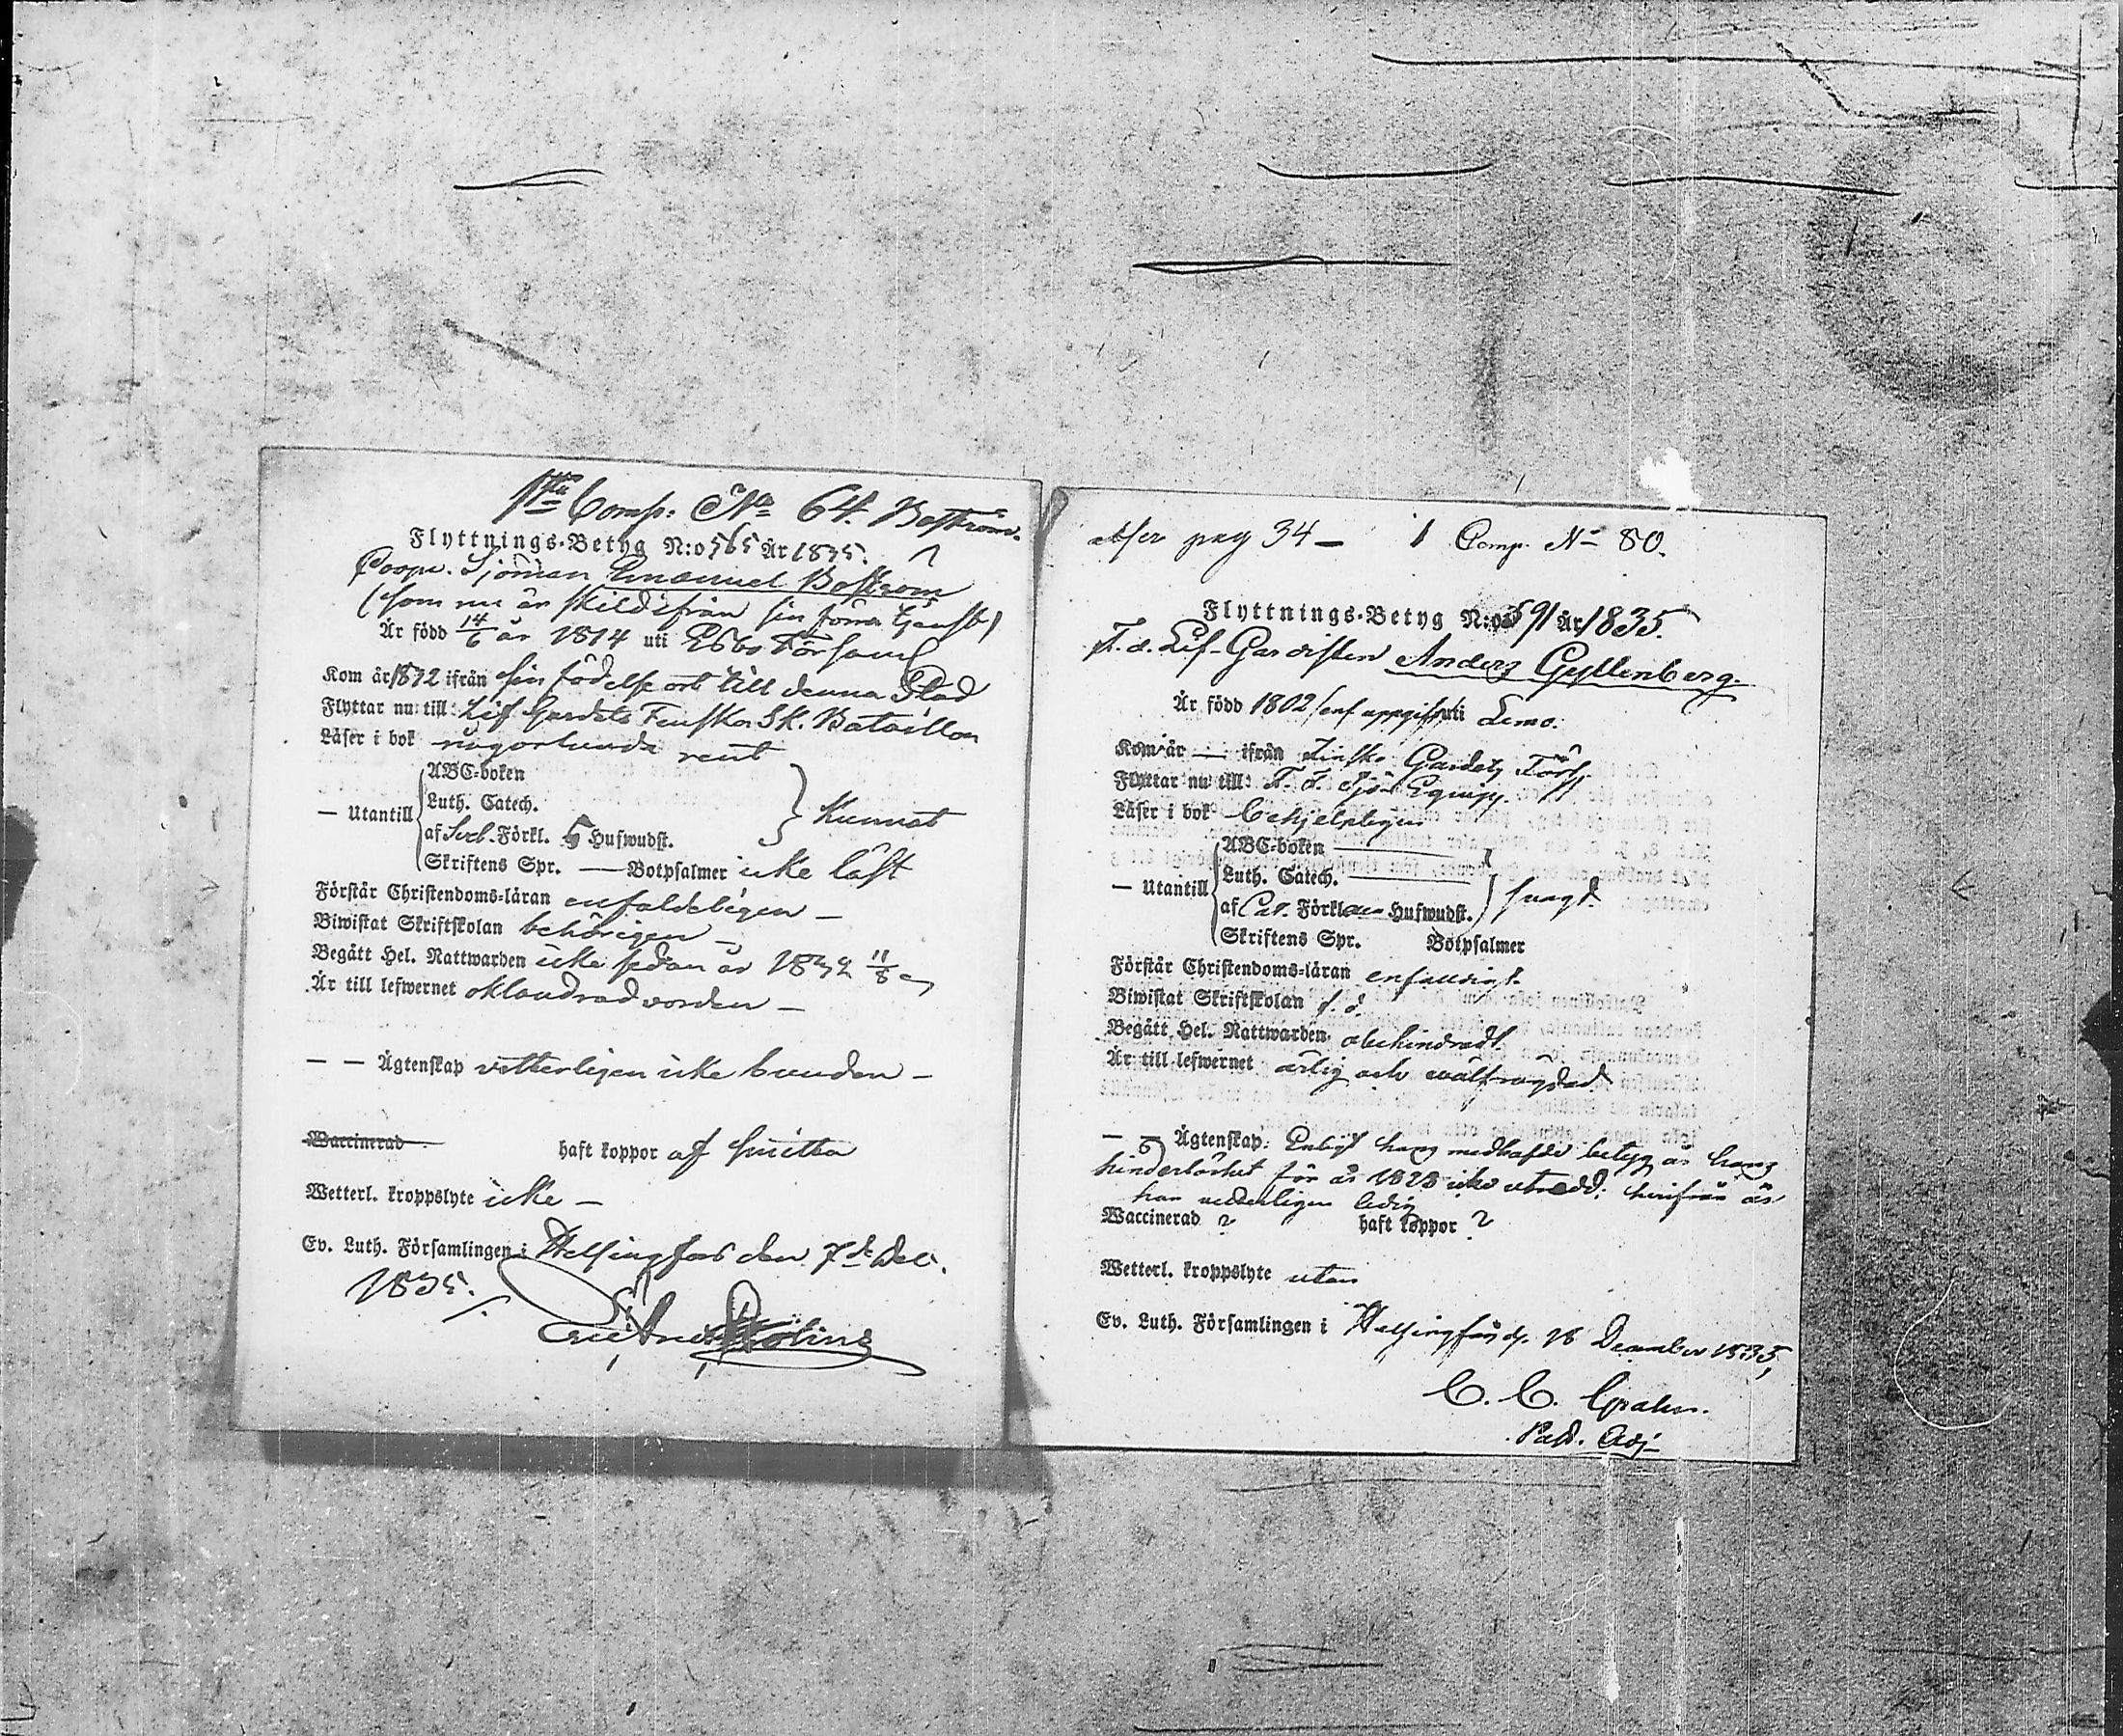 1ste Comp: No 64. Boström.
Flyttnings-Betyg N:o 565 År 1835.
Coopv. Sjöman Emanuel Boström
(som nu är skild ifrån sin förra tjenst)
Är född 14/6 år 1814 uti Esbo Församl
Kom år 1832 ifrån sin födelse ort till denna Stad
Flyttar nu till: Lif Gardets Finska Sk. Bataillon
Läser i bok någorlunda rent
ABC-boken
Luth. Catech.
— Utantill
af Sveb. Förkl. 5 Hufwudst.
Kunnat
Skriftens Spr. — Botpsalmer icke läst
Förstår Christendoms-läran enfaldeligen —
Biwistat Skriftskolan behörigen —
Begått Hel. Nattwarden icke sedan år 1832 11/8
Är till lefwernet oklandrad vorden —
— — Ägtenskap vetterligen icke bunden —
Waccinerad haft koppor af smitta
Wetterl. kroppslyte icke —
Ev. Luth. Församlingen i Helsingfors den 7de Dec.
1835.
pag 34 — 1 Comp. No 80.
Flyttnings-Betyg N:o 591 År 1835.
F. d. Lif-Gardisten Anders Gyllenberg.
Är född 1802 /enl uppgift/ uti Lemo.
Kom år — ifrån Finska Gardets Förs.
Flyttar nu till: F. F. Sjö-Equip.
Läser i bok behjelpligen
ABC-boken —
Luth. Catech. —
— Utantill
af Cat. Förkl Hufwudst.
svagt.
Skriftens Spr. Botpsalmer
Förstår Christendoms-läran enfaldigt.
Biwistat Skriftskolan d. o.
Begått Hel. Nattwarden obehindradt.
Är till lefwernet ärlig och wälfrägdad
— — Ägtenskap: Enligt hans medhafde betyg är hans
hinderlöshet för år 1828 icke utredd: härifrån är
han vetterligen ledig
Waccinerad ? haft koppor ?
Wetterl. kroppslyte utan
Ev. Luth. Församlingen i Helsingfors d. 18 December 1835,
C. C. Grahn.
Past. Adj